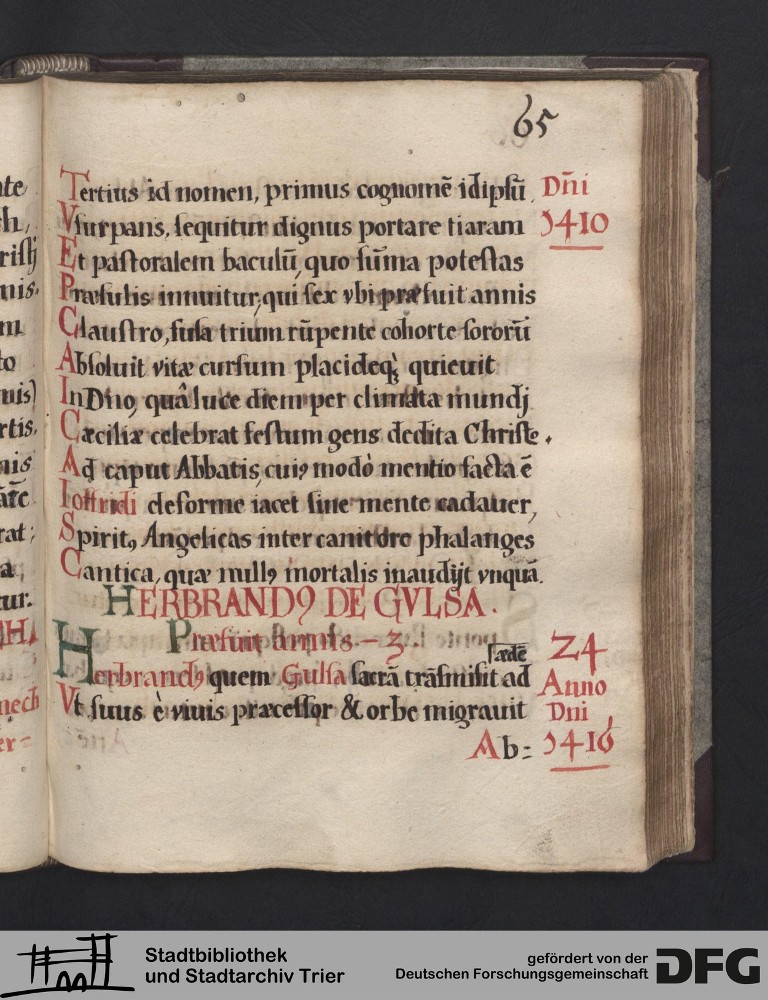 65
Tertius id nomen, primus cognomē idipsū Dn̄i
Vsurpans, sequitur dignus portare tiaram 1410
Et pastoralem baculū, quo sūma potestas
Præsulis innuitur, qui sex vbi præfuit annis
Claustro, fusa trium rūpente cohorte sororū
Absoluit vitæ cursum placideq; quieuit
In Dn̄o, quâ luce diem per climata mundj
Cæciliæ celebrat festum gens dedita Christe.
Ad caput Abbatis, cuiꝰ modò mentio facta ē
Ioffridi deforme iacet sine mente cadauer,
Spiritꝰ Angelicas inter canit ore phalanges
Cantica, quæ nullꝰ mortalis inaudijt vnquā.
HERBRANDꝰ DE GVLSA.
Præfuit annis – 3. 24
sædē
Herbrandꝰ quem Gulsa sacrā trāsmisit ad Anno
Vt suus è viuis præcessor & orbe migrauit Dni
Ab= 1416
nis.
rtis.
Stadtbibliothek
und Stadtarchiv Trier
gefördert von der
Deutschen Forschungsgemeinschaft
DFG